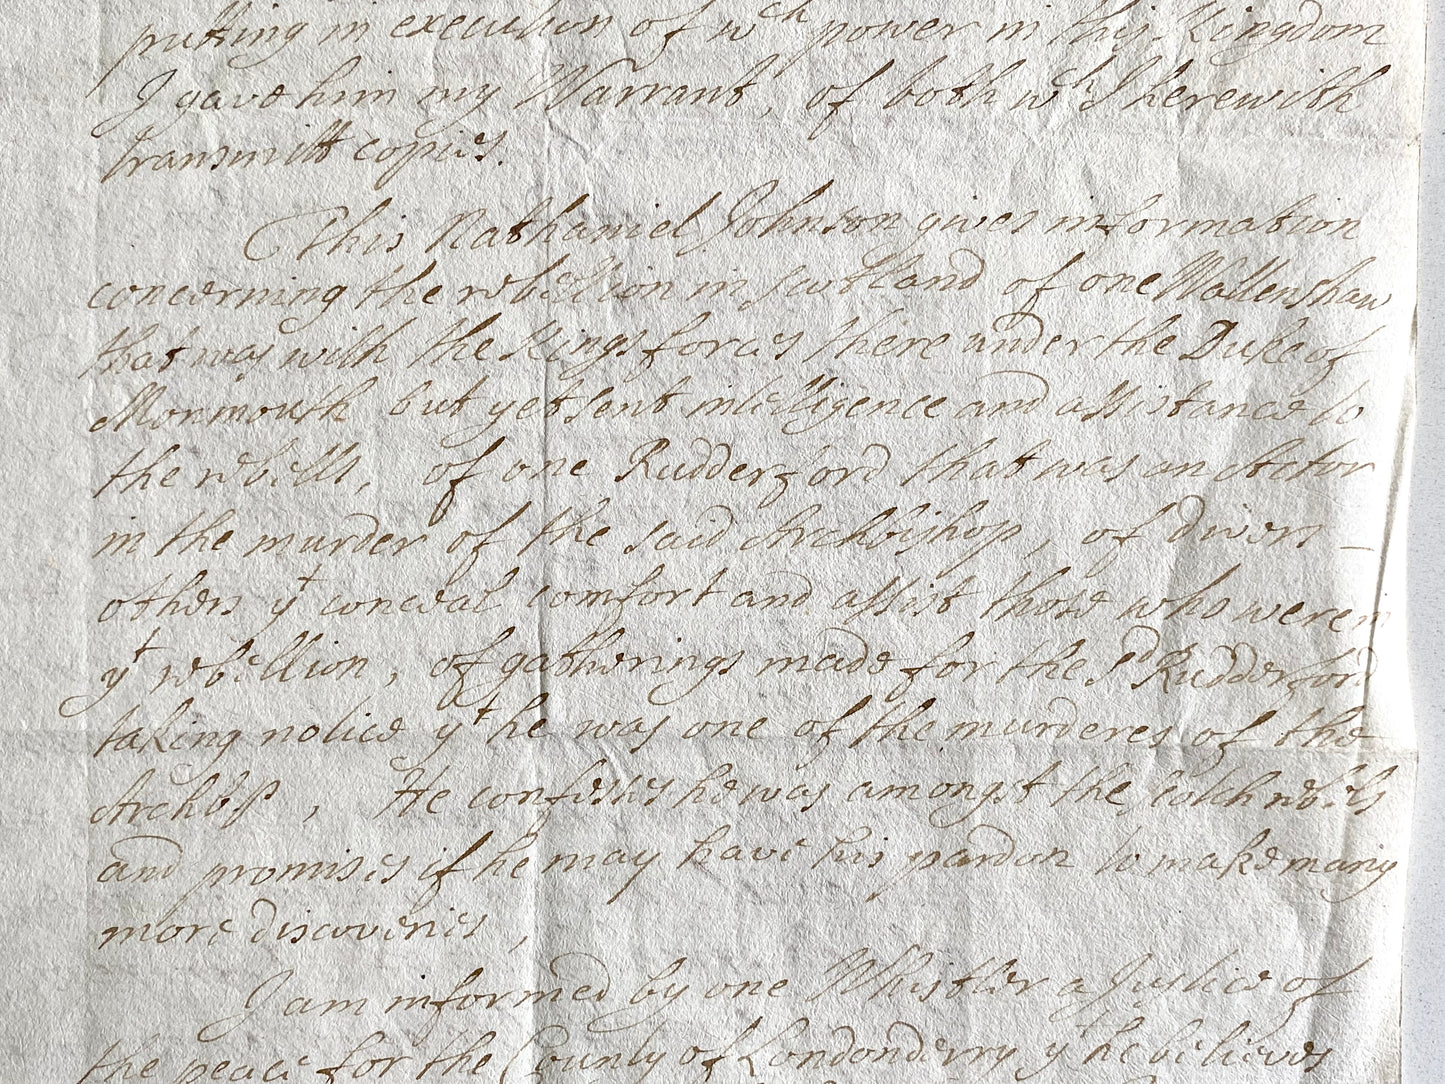 putting in execution of wch power in this Kingdom
I gave him my Warrant, of both wch I herewith
transmitt copies.
This Nathaniel Johnson gives information
concerning the rebellion in Scotland of one Wallenshaw
that was with the Kings forces there under the Duke of
Monmouth, but yet sent intelligence and assistance to
the rebells, of one Rudderford that was an Actor
in the murder of the said Archbishop, of divers
others yt conceal comfort and assist those who were in
yt rebellion, of gatherings made for the sd Rudderford
taking notice yt he was one of the murderers of the
Archbsp, He confesses he was amongst the scotch rebells
and promises if he may have his pardon to make many
more discoveries,
I am informed by one Whistler a Justice of
the peace for the County of Londonderry yt he believes